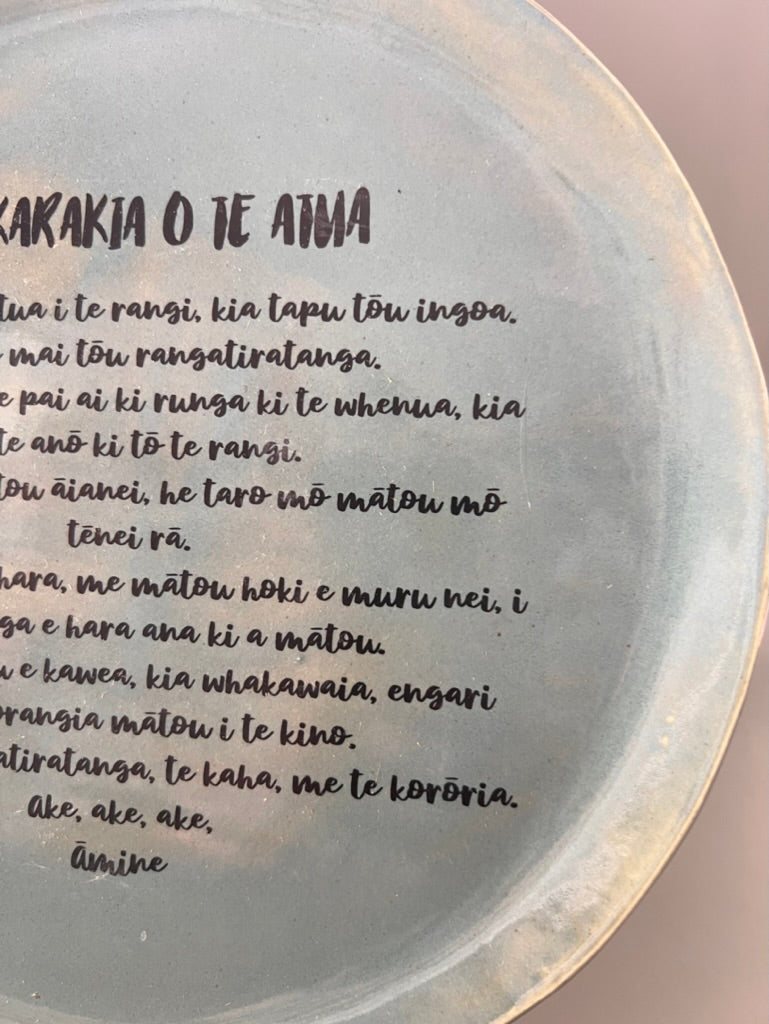 KARAKIA O TE ATUA
i te rangi, kia tapu tōu ingoa.
mai tōu rangatiratanga.
pai ai ki runga ki te whenua, kia
anō ki tō te rangi.
āianei, he taro mō mātou mō
tēnei rā.
hara, me mātou hoki e muru nei, i
e hara ana ki a mātou.
e kawea, kia whakawaia, engari
mātou i te kino.
te kaha, me te korōria.
Ake, ake, ake,
Āmine